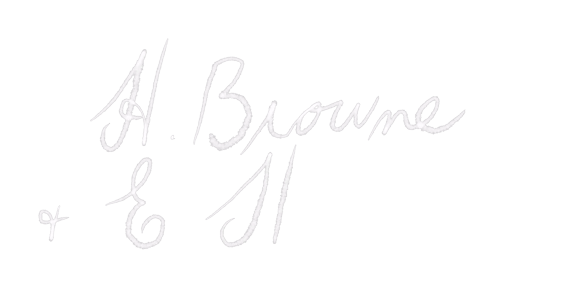 H. Browne
& E H